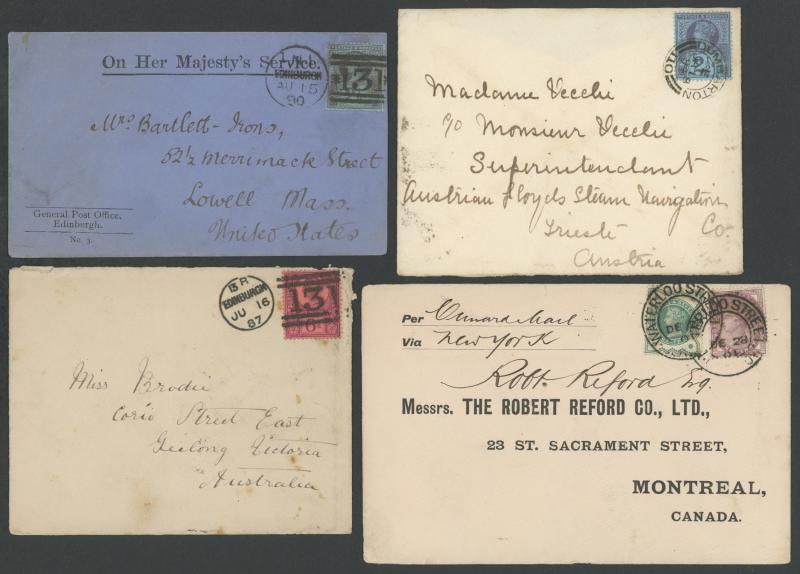 On Her Majesty's Service.
EDINBURGH
AU 15
90
131
Mrs Bartlett-Irons,
52½ Merrimack Street
Lowell Mass.
United States
General Post Office,
Edinburgh.
No. 3.
DUMBARTON
Madame Vecchi
c/o Monsieur Vecchi
Superintendant
Austrian Lloyds Steam Navigation
Co
Trieste
Austria
EDINBURGH
JU 16
87
131
Miss Brodie
Corio Street East
Geelong Victoria
Australia
WATERLOO STREET
DE 28
Per Cunard Mail
Via New York
Robt. Reford Esq.
Messrs. THE ROBERT REFORD CO., LTD.,
23 ST. SACRAMENT STREET,
MONTREAL,
CANADA.